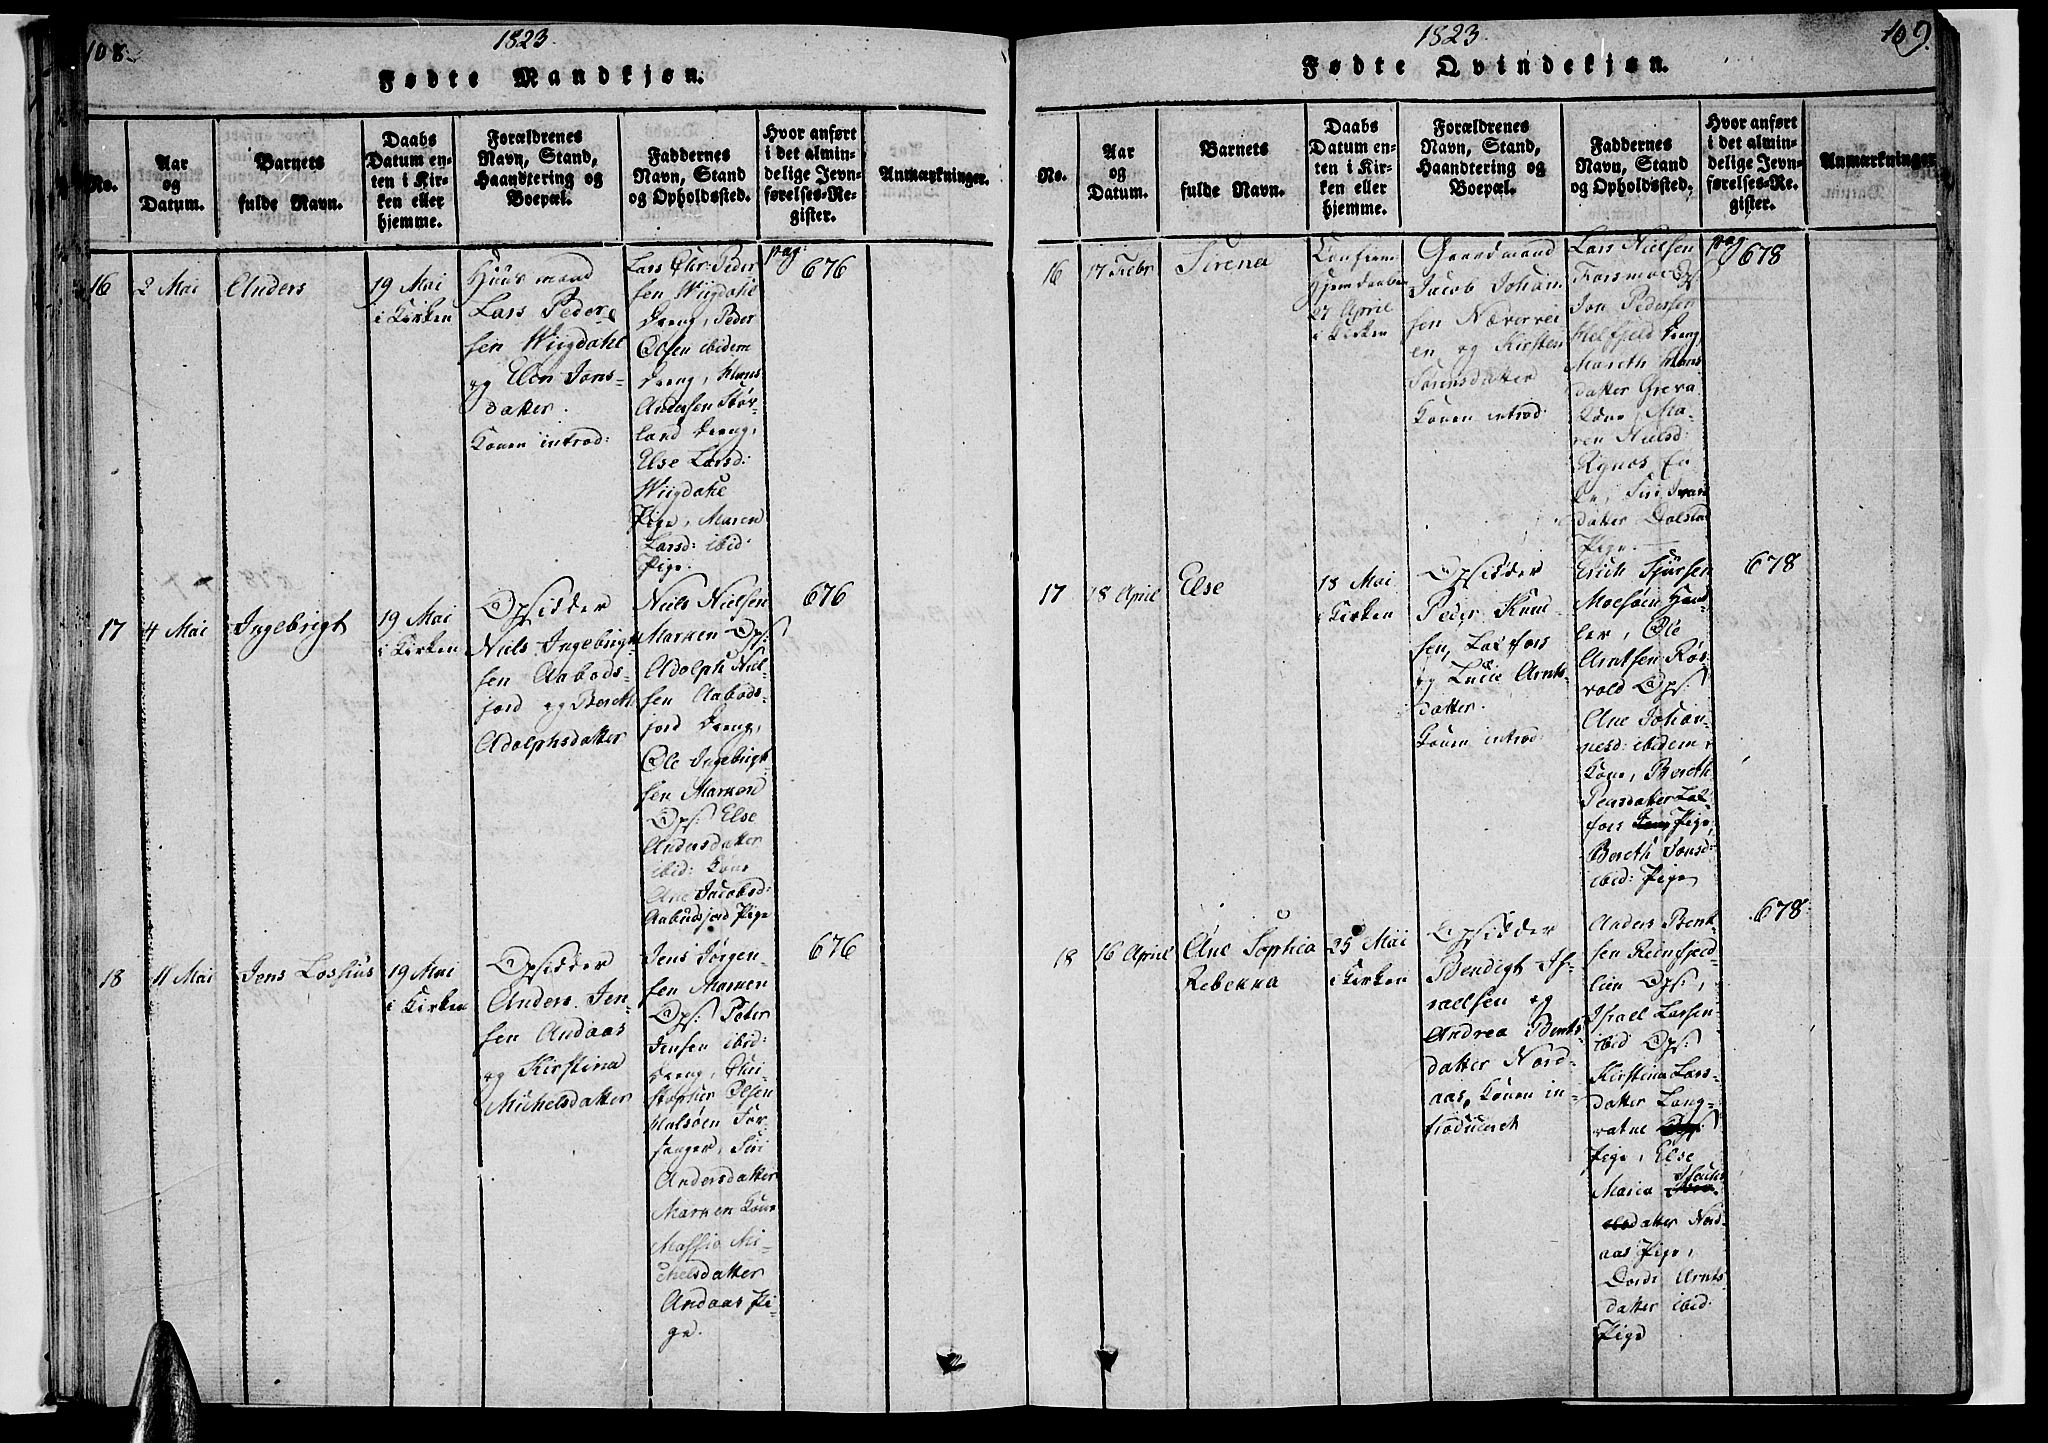 108.
1823.
Fødte Mandkjøn.
No.
Aar
og
Datum.
Barnets
fulde Navn.
Daabs
Datum en-
ten i Kir-
ken eller
hjemme.
Forældrenes
Navn, Stand,
Haandtering og
Boepæl.
Faddernes
Navn, Stand
og Opholdssted.
Hvor anført
i det almin-
delige Jevn-
førelses-Re-
gister.
Anmærkninger.
16
2 Mai
Anders
19 Mai
i Kirken
Huusmand
Lars Peder-
sen Wiigdahl
og Elen Jons-
datter.
Konen introd:
Lars Chr: Peder
sen Wiigdahl
Dreng, Peder
Olsen ibidem
Dreng, Hans
Andersen Stor-
land Dreng,
Else Larsd:
Wiigdahl
Pige, Maren
Larsd: ibid:
Pige.
pag:
676
17
4 Mai
Ingebrigt
19 Mai
i Kirken
Opsidder
Niels Ingebrigt
sen Aabods-
fjord og Bereth
Adolphsdatter
Niels Nielsen
Marken Ops:
Adolph Niel-
sen Aabods-
fjord Dreng,
Ole Ingebrigt-
sen Marken
Ops: Else
Andersdatter
ibid: Kone
Ane Jacobsd:
Aabudsfjord Pige
676
18
11 Mai
Jens Lossius
19 Mai
i Kirken
Opsidder
Anders Jen-
sen Andaas
og Kirstina
Michelsdatter
Jens Jørgen-
sen Marken
Ops: Peter
Jensen ibid:
Dreng, Chri-
stopher Olsen
Halsøen For-
sanger, Siri
Andersdatter
Marken Kone
Massia Mi-
chelsdatter
Andaas Pi-
ge.
676
109.
1823.
Fødte Qvindekjøn.
No.
Aar
og
Datum.
Barnets
fulde Navn.
Daabs
Datum en-
ten i Kir-
ken eller
hjemme.
Forældrenes
Navn, Stand,
Haandtering og
Boepæl.
Faddernes
Navn, Stand
og Opholdssted.
Hvor anført
i det almin-
delige Jevn-
førelses-Re-
gister.
Anmærkninger
16
17 Febr
Sirena
Confirm
Hjemdaaben
27 April
i Kirken
Gaardmand
Jacob Johan
sen Næverei
en og Kirsten
Sørensdatter
Konen introd:
Lars Nielsen
Forsmoe Ops:
Jon Pedersen
Dreng,
Mareth Hans
datter
Kone, Ma-
ren Nielsd:
datter Dolstad
Pige.
pag
678
17
18 April
Else
18 Mai
i Kirken
Opsidder
Peder Knud
sen, Laxfors
og Lucie Arnts-
datter.
Konen introd:
Erich Sjursen
Moesøen Hand-
ler, Ole
Arntsen Røs-
vold Ops:
Ane Johan-
nesd: ibidem
Kone, Bereth
Pedersdatter Lax-
fors Pige,
Bereth Jonsd:
ibid: Pige
678
18
16 April
Ane Sophia
Rebekka
25 Mai
i Kirken
Opsidder
Bendigt Is-
raelsen og
Andrea Bents
datter Nord-
aas, Konen in-
troduceret
Anders Bent-
sen Reinfjeld-
lien Ops:,
Israel Larsen
ibid Ops:
Kirstina Lars-
datter Lang-
vatne
Pige, Else
Maria
datter Nord-
aas Pige,
Dordi Arnts
datter ibid:
Pige
678